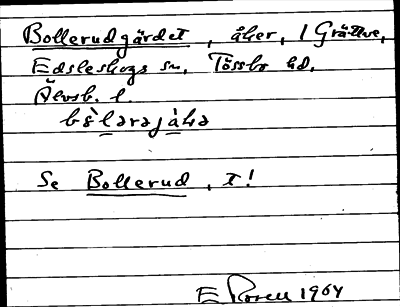 Bollerudgärdet, åker, 1 Grättve,
Edsleskogs sn, Tössbo hd,
Älvsb. l.
Se Bollerud, t!
E Rosell 1964